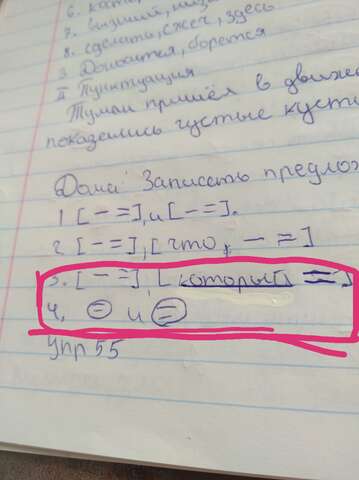 6. кате
7. низший, низ
8. сделать, сжег, здесь
9. Дописался, борется
II Пунктуация
Туман пришёл в движе
показались густые кусти
Дома: Записать предлож
1 [ — = ], и [ — = ].
2 [ — = ], [ что, — = ]
3. [ — = ], [ который = ]
4. = и =
упр 55